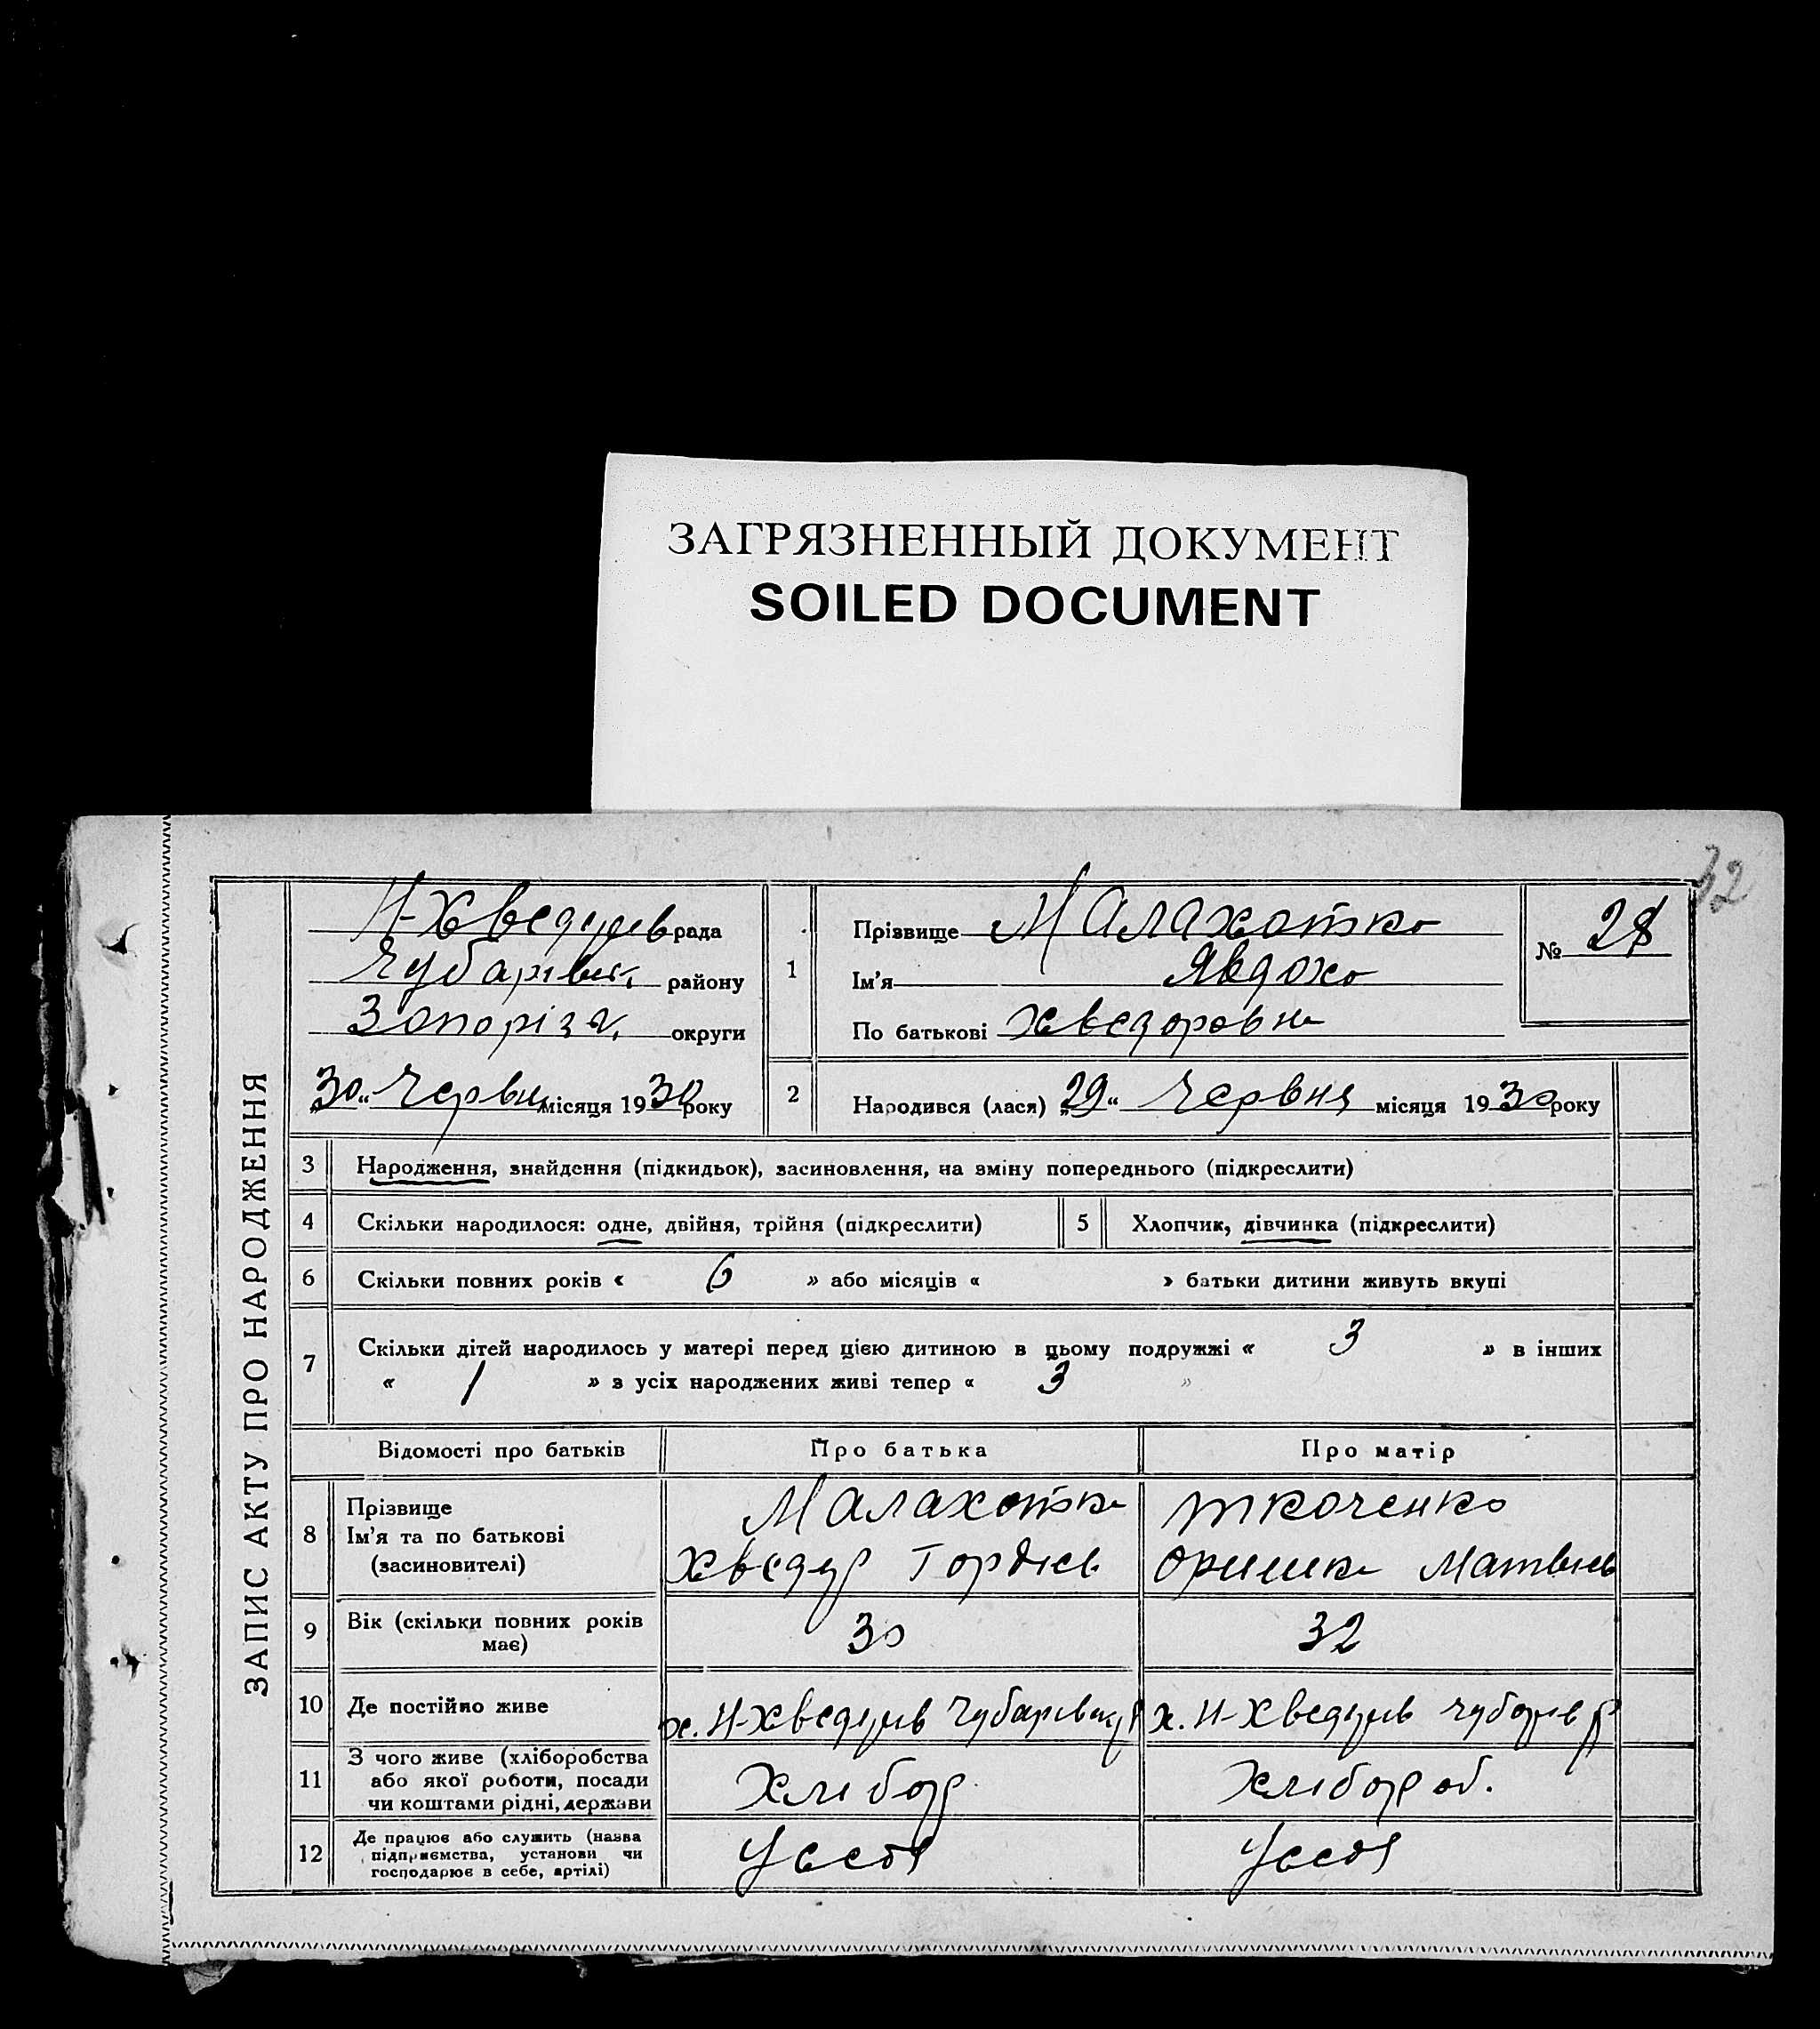 ЗАГРЯЗНЕННЫЙ ДОКУМЕНТ
SOILED DOCUMENT
32
ЗАПИС АКТУ ПРО НАРОДЖЕННЯ
Н-Хведурів рада
Чубарівськ. району
Запоріз. округи
„30“ Червня місяця 1930 року
1
Прізвище Малахатка
Ім'я Явдоха
По батькові Хведоровна
№ 28
2
Народився (лася) „29“ Червня місяця 1930 року
3 Народження, знайдення (підкидьок), засиновлення, на зміну попереднього (підкреслити)
4 Скільки народилося: одне, двійня, трійня (підкреслити)
5 Хлопчик, дівчинка (підкреслити)
6 Скільки повних років « 6 » або місяців « » батьки дитини живуть вкупі
7 Скільки дітей народилось у матері перед цією дитиною в цьому подружжі « 3 » в інших
« 1 » з усіх народжених живі тепер « 3 »
Відомості про батьків Про батька Про матір
8 Прізвище
Ім'я та по батькові
(засиновителі)
Малахатка
Хведур Гордієв
Ткаченко
Оришка Матвіїв
9 Вік (скільки повних років
має)
30 32
10 Де постійно живе
х. Н-Хведурів Чубарівськ р
х. Н-Хведурів Чубарів р
11 З чого живе (хліборобства
або якої роботи, посади
чи коштами рідні, держави
Хлібор
Хлібороб.
12 Де працює або служить (назва
підприємства, установи чи
господарює в себе, артілі)
У себя
У себя